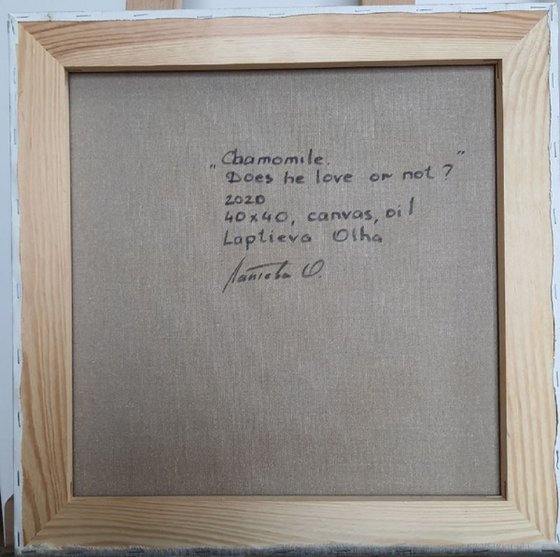 „Chamomile.
Does he love or not?”
2020
40x40, canvas, oil
Laptieva Olha
Лаптєва О.